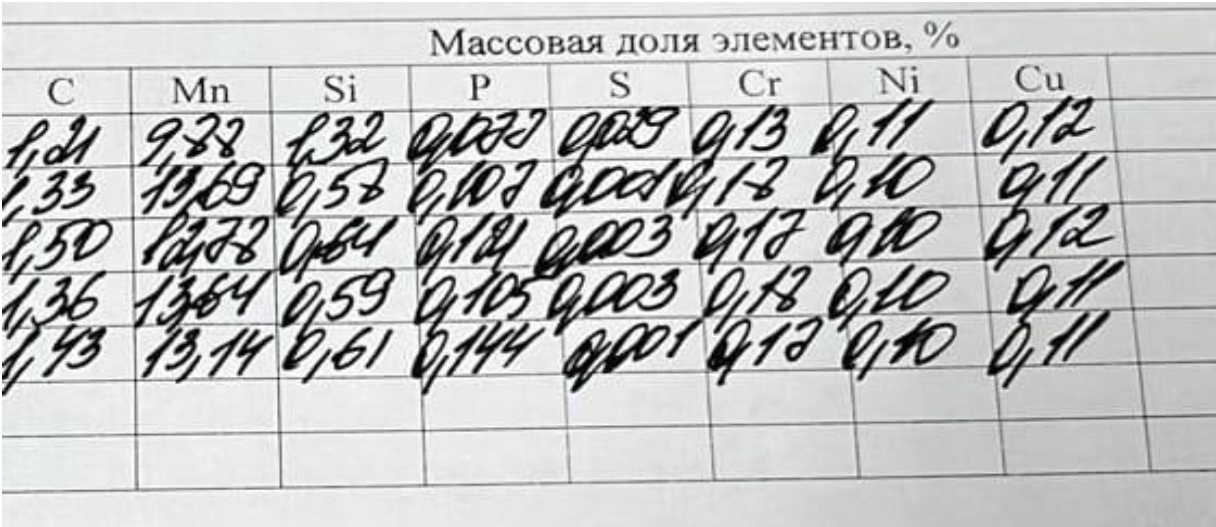 Массовая доля элементов, %
C Mn Si P S Cr Ni Cu
1,21 9,88 1,32 0,077 0,029 0,13 0,11 0,12
1,33 13,69 0,58 0,107 0,001 0,18 0,10 0,11
1,50 12,78 0,64 0,121 0,003 0,17 0,10 0,12
1,36 13,64 0,59 0,105 0,003 0,18 0,10 0,11
1,43 13,14 0,61 0,144 0,001 0,17 0,10 0,11